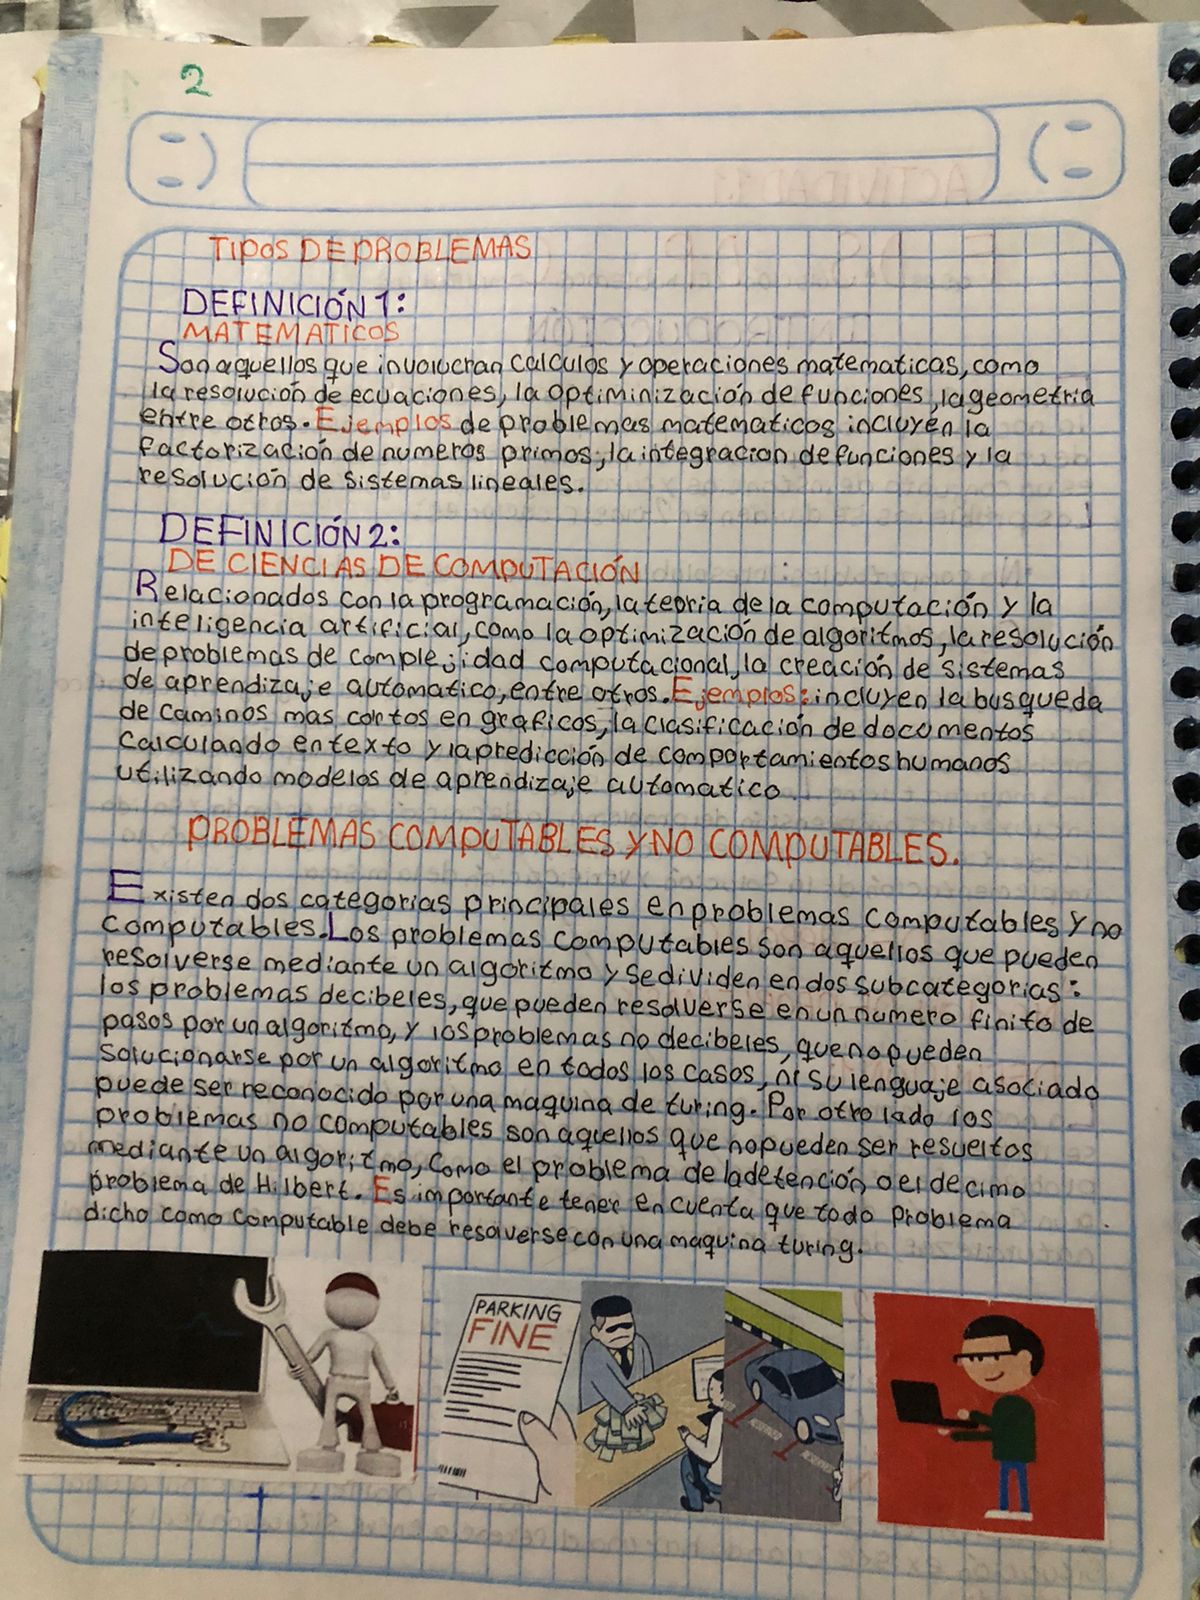 2
TIPOS DE PROBLEMAS
DEFINICIÓN 1:
MATEMATICOS
Son aquellos que involucran calculos y operaciones matematicas, como
la resolución de ecuaciones, la optiminización de funciones, la geometria
entre otros. Ejemplos de problemas matematicos incluyen la
factorización de numeros primos, la integracion de funciones y la
resolución de sistemas lineales.
DEFINICIÓN 2:
DE CIENCIAS DE COMPUTACIÓN
Relacionados con la programación, la teoria de la computación y la
inteligencia artificial, como la optimización de algoritmos, la resolución
de problemas de complejidad computacional, la creación de sistemas
de aprendizaje automatico, entre otros. Ejemplos: incluyen la busqueda
de caminos mas cortos en graficos, la clasificación de documentos
calculando en texto y la predicción de comportamientos humanos
utilizando modelos de aprendizaje automatico
PROBLEMAS COMPUTABLES Y NO COMPUTABLES.
Existen dos categorias principales en problemas computables y no
computables. Los problemas computables son aquellos que pueden
resolverse mediante un algoritmo y se dividen en dos subcategorias:
los problemas decibeles, que pueden resolverse en un numero finito de
pasos por un algoritmo, y los problemas no decibeles, que no pueden
solucionarse por un algoritmo en todos los casos, ni su lenguaje asociado
puede ser reconocido por una maquina de turing. Por otro lado los
problemas no computables son aquellos que no pueden ser resueltos
mediante un algoritmo, como el problema de la detención o el decimo
problema de Hilbert. Es importante tener en cuenta que todo problema
dicho como computable debe resolverse con una maquina turing.
PARKING
FINE